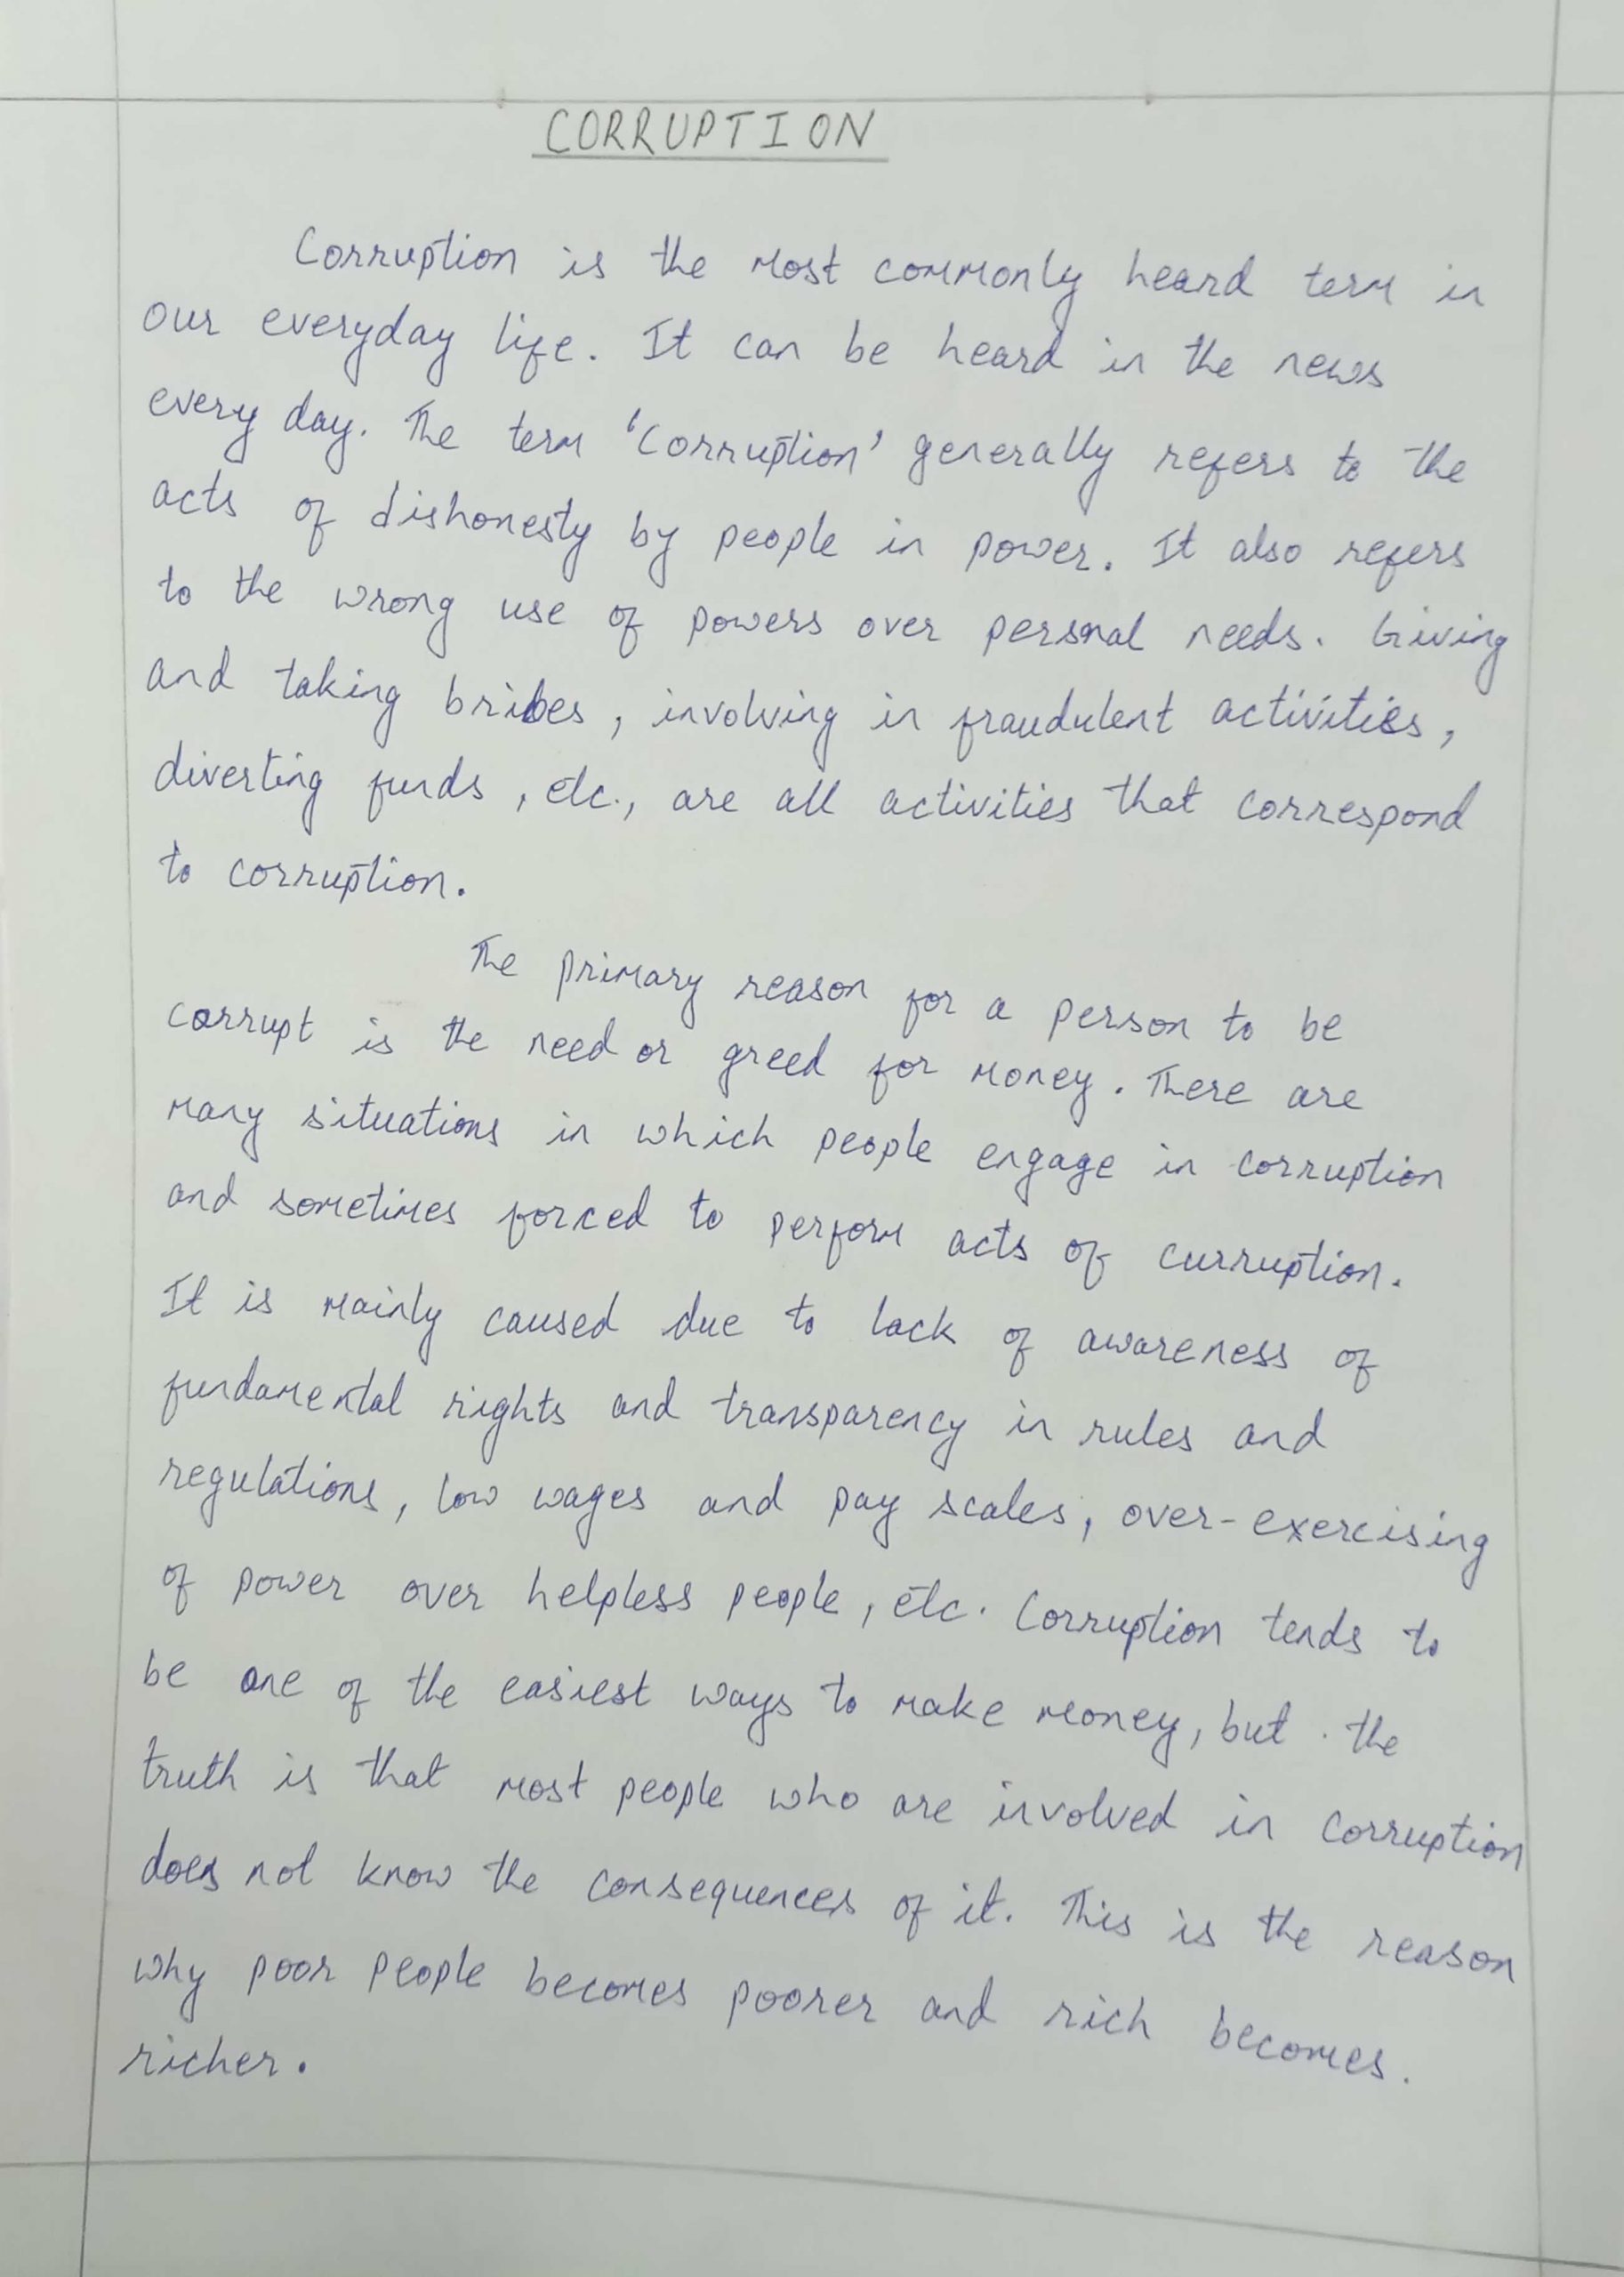 CORRUPTION
Corruption is the most commonly heard term in
our everyday life. It can be heard in the news
every day. The term 'Corruption' generally refers to the
acts of dishonesty by people in power. It also refers
to the wrong use of powers over personal needs. Giving
and taking bribes, involving in fraudulent activities,
diverting funds, etc., are all activities that correspond
to corruption.
The primary reason for a person to be
corrupt is the need or greed for money. There are
many situations in which people engage in corruption
and sometimes forced to perform acts of curruption.
It is mainly caused due to lack of awareness of
fundamental rights and transparency in rules and
regulations, low wages and pay scales, over-exercising
of power over helpless people, etc. Corruption tends to
be one of the easiest ways to make money, but the
truth is that most people who are involved in corruption
does not know the consequences of it. This is the reason
why poor people becomes poorer and rich becomes.
richer.